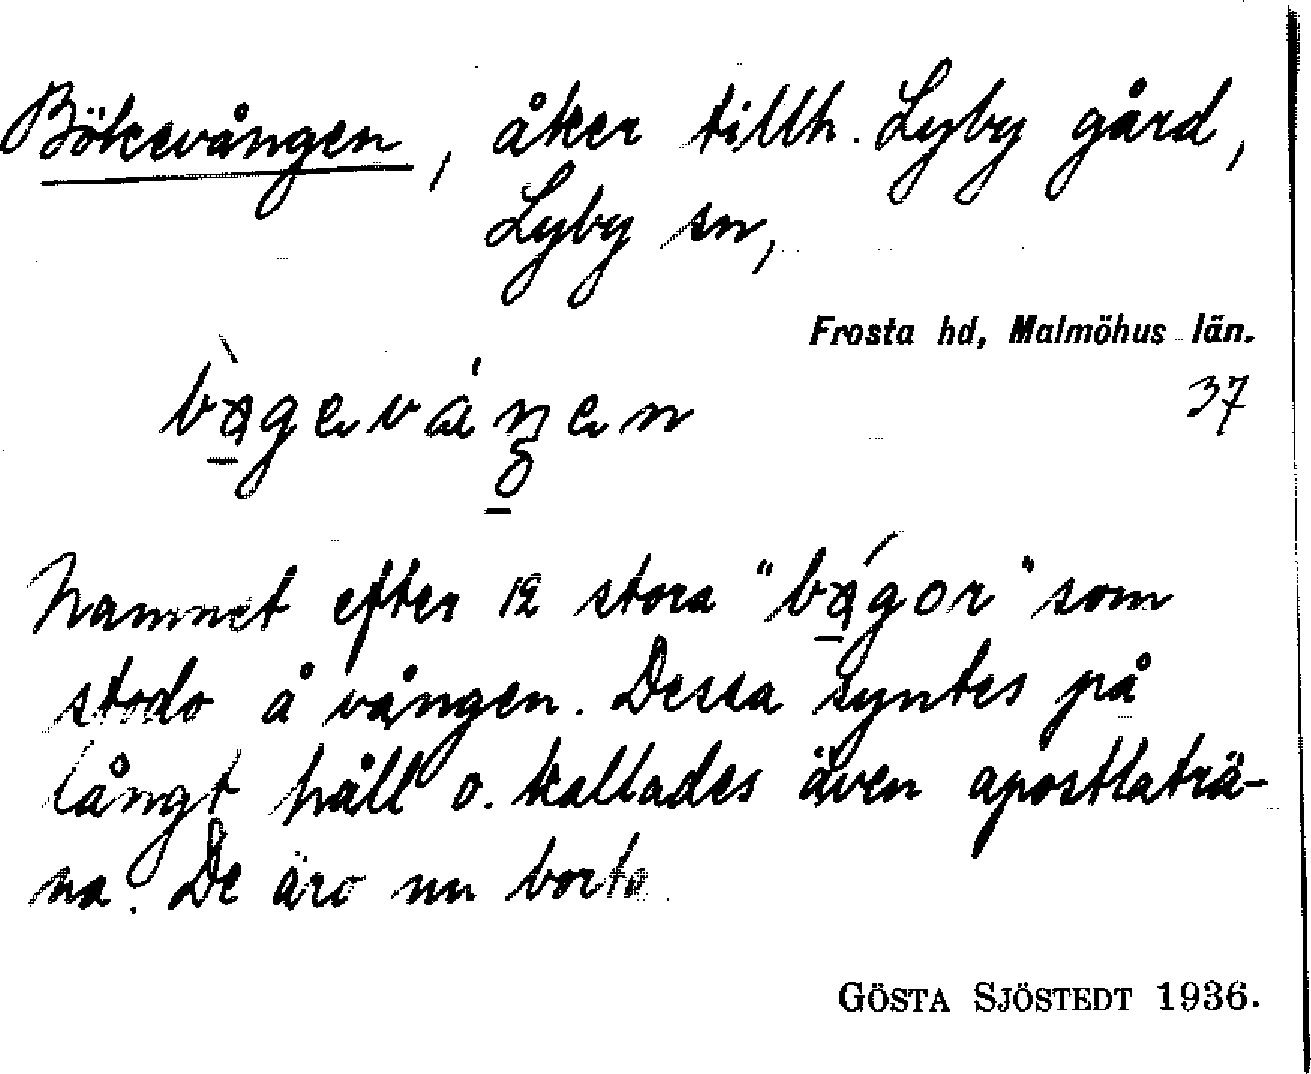 Bökevången, åker tillh. Lyby gård,
Lyby sn,
Frosta hd, Malmöhus län.
37
Namnet efter 12 stora "bågor" som
stodo å vången. Dessa syntes på
långt håll o. kallades även apostlaträ-
na. De äro nu borta.
GÖSTA SJÖSTEDT 1936.